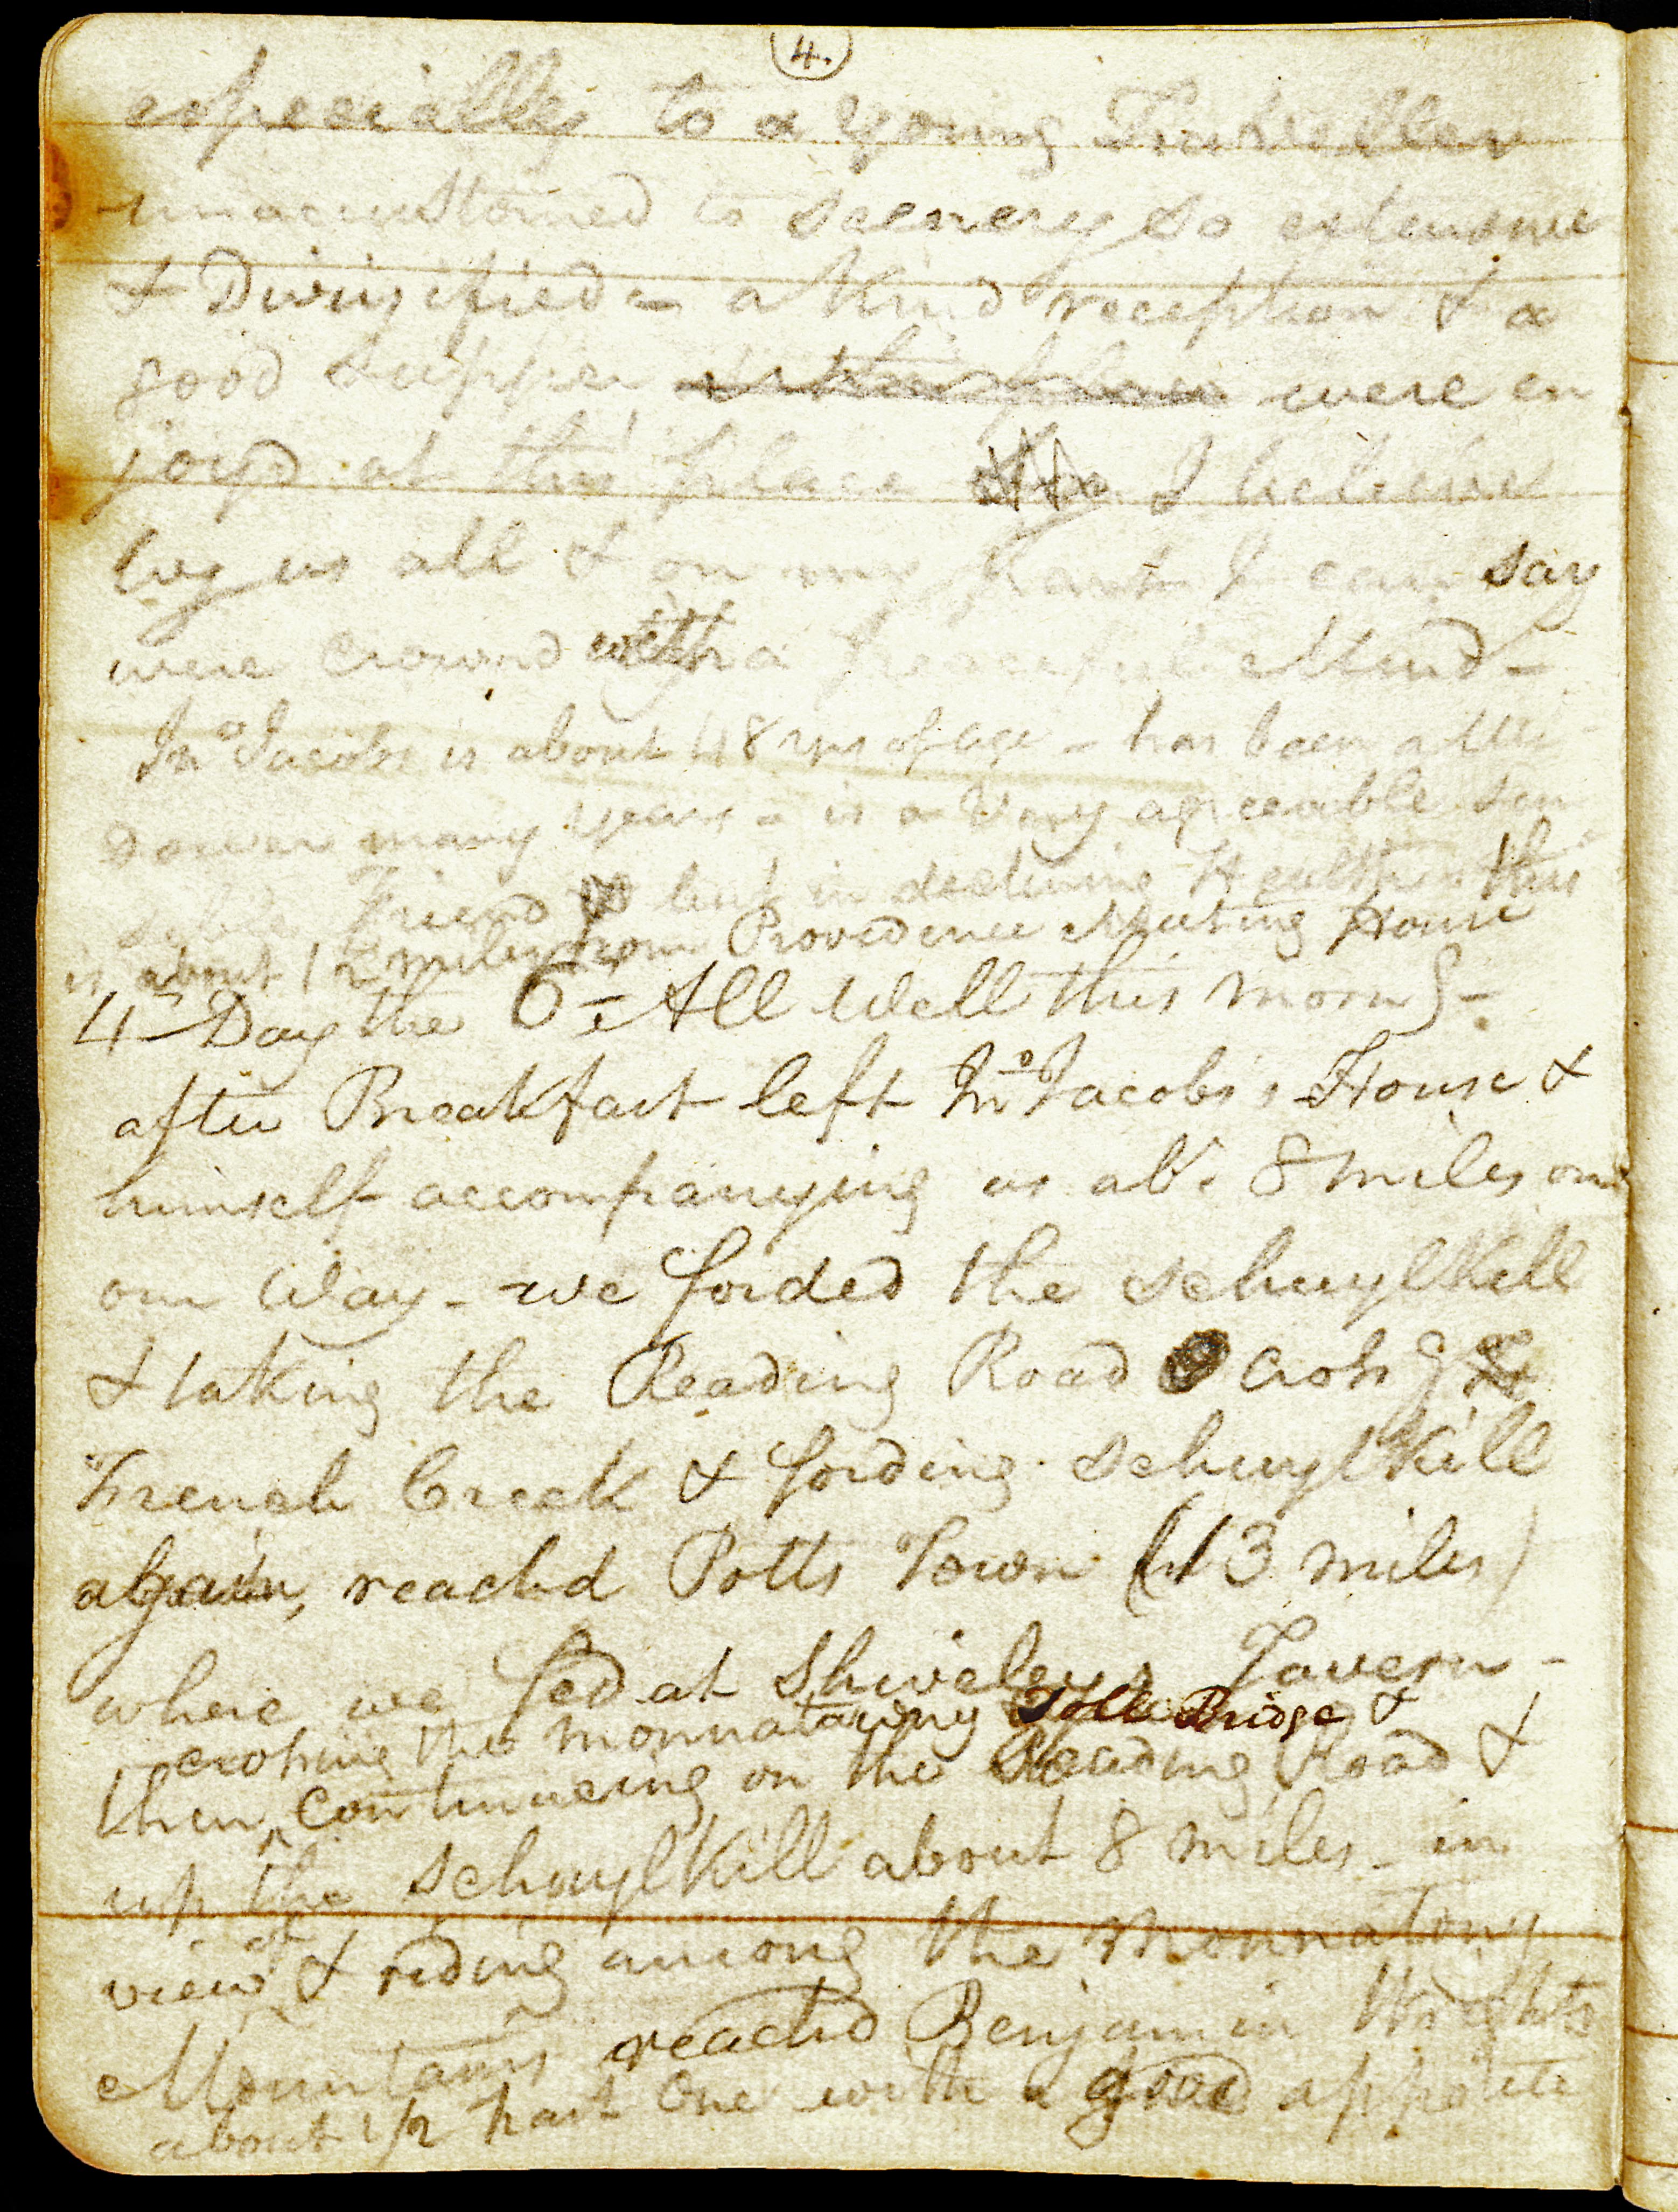 4.
especially to a Young Traveller
unacustomed to scenery so extensive
& Diversified - a Kind reception & a
good supper were en
joyd at this place I believe
by us all & on my part I can say
were crownd with a peaceful Mind -
Jno Jacobs is about 48 yrs of age - has been a Wi
dower many years - is a Very agreeable sen
sible Friend but in declining Health - this
is about 1 1/2 miles from Providence Meeting House
4th Day the 6th All Well this morng -
after Breakfast left Jno Jacobs's House &
himself accompanying us abt. 8 miles on
our Way - we forded the Schuylkill
& taking the Reading Road crossg
French Creek & fording Schuylkill
again, reachd Potts Town (13 miles)
where we fed at Shiveley's Tavern -
crossing the Monnatawny Toll Bridge &
then continueing on the Reading Road &
up the Schuylkill about 8 miles - in
view of & riding among the Monnatony
Mountains reachd Benjamin Wrights
about 1/2 past One with a good appetite